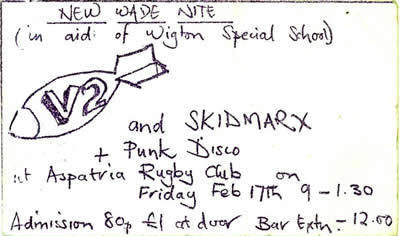 NEW WADE NITE
(in aid: of Wigton Special School)
V2
and SKIDMARX
+ Punk Disco
at Aspatria Rugby Club on
Friday Feb 17th 9 - 1.30
Admission 80p £1 at door Bar Extn. - 12.00